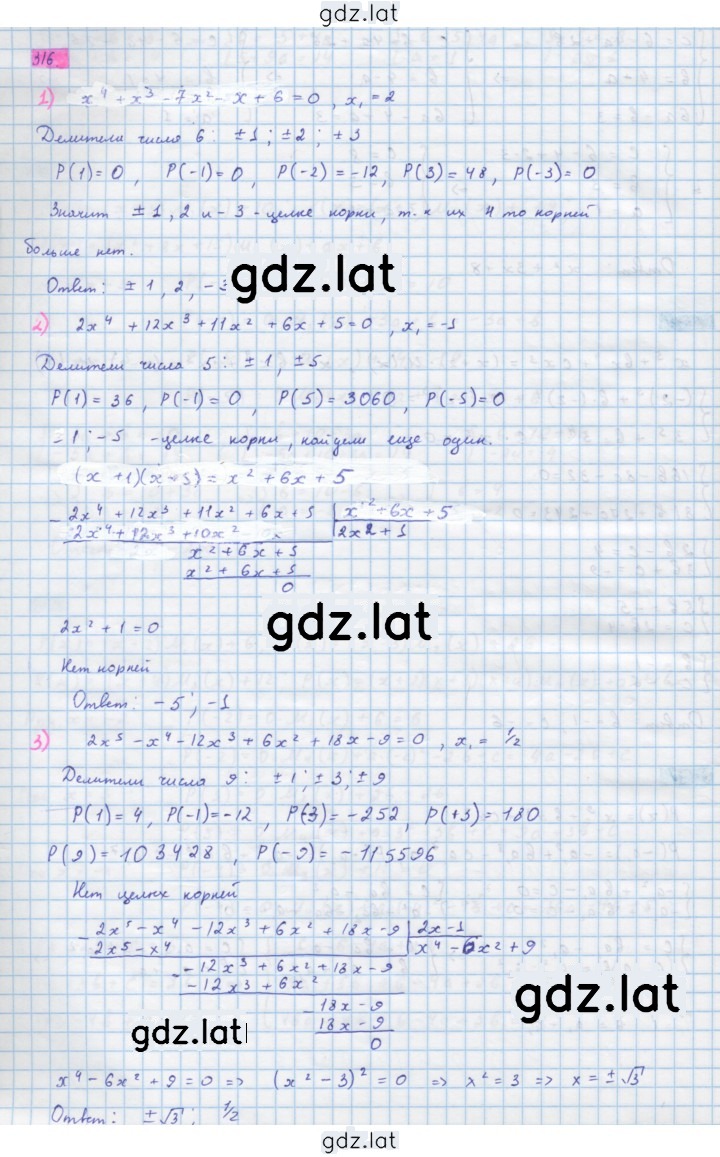 gdz.lat
316
1) x⁴ + x³ - 7x² - x + 6 = 0 , x₁ = 2
Делители числа 6: ±1; ±2; ±3
P(1)=0, P(-1)=0, P(-2)=-12, P(3)=48, P(-3)=0
Значит ±1, 2 и -3 - целые корни, т.к их 4 то корней
больше нет.
gdz.lat
Ответ: ±1, 2, -3
2) 2x⁴ + 12x³ + 11x² + 6x + 5 = 0 , x₁ = -1
Делители числа 5: ±1, ±5
P(1) = 36, P(-1) = 0, P(5) = 3060, P(-5) = 0
-1; -5 - целые корни, найдем еще один.
(x +1)(x+5) = x² + 6x + 5
- 2x⁴ + 12x³ + 11x² + 6x + 5 | x² + 6x + 5
2x⁴ + 12x³ + 10x² | 2x² + 1
x² + 6x + 5
x² + 6x + 5
0
2x² + 1 = 0
gdz.lat
Нет корней
Ответ: -5; -1
3) 2x⁵ - x⁴ - 12x³ + 6x² + 18x - 9 = 0 , x₁ = 1/2
Делители числа 9: ±1; ±3; ±9
P(1) = 4, P(-1) = -12, P(-3) = -252, P(+3) = 180
P(9) = 103428, P(-9) = -115596
Нет целых корней
- 2x⁵ - x⁴ - 12x³ + 6x² + 18x - 9 | 2x - 1
2x⁵ - x⁴ | x⁴ - 6x² + 9
- -12x³ + 6x² + 18x - 9
-12x³ + 6x²
- 18x - 9
18x - 9
0
gdz.lat
gdz.lat
x⁴ - 6x² + 9 = 0 => (x² - 3)² = 0 => x² = 3 => x = ±√3
Ответ: ±√3; 1/2
gdz.lat